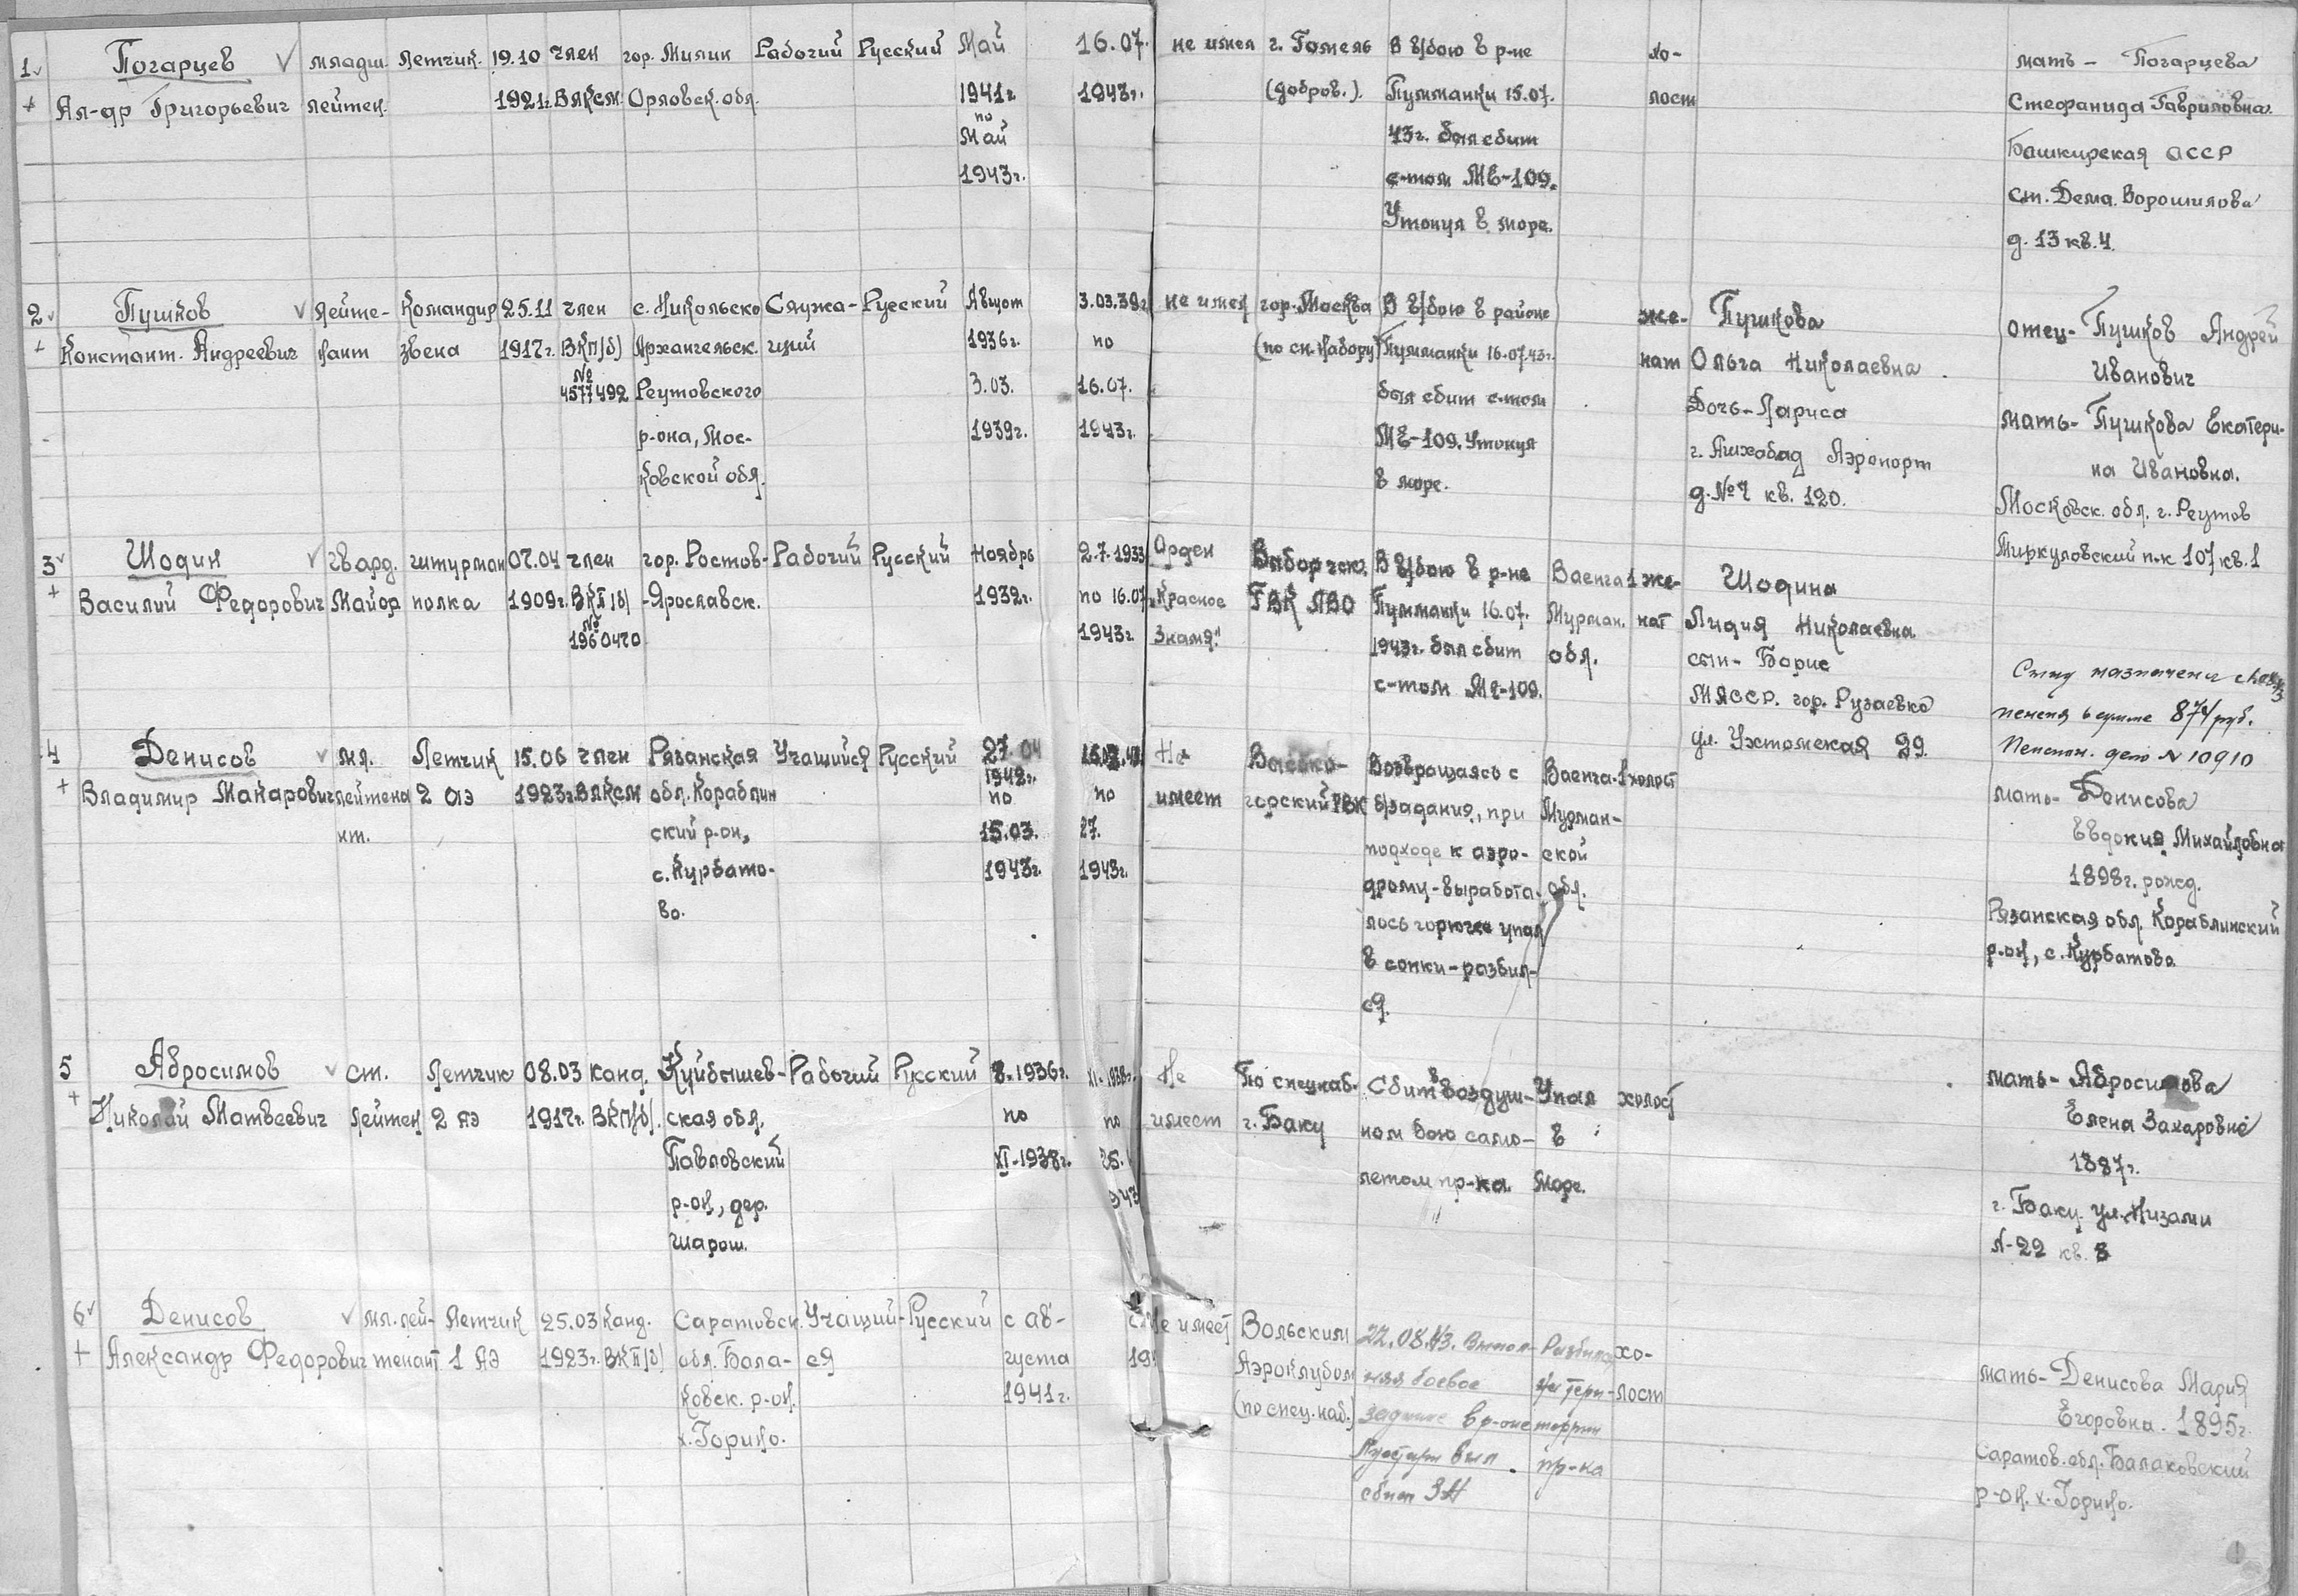 1 Погарцев младш. Летчик. 19.10 член гор. Милик Рабочий Русский Май 16.07. не имел г. Гомель В в/бою в р-не хо- мать - Погарцева
Ал-др Григорьевич лейтен. 1921г. ВЛКСМ. Орловск. обл. 1941г. 1943г. (добров.). Пумманки 15.07. лост Стефанида Гавриловна.
по Май 43г. был сбит Башкирская АССР
1943г. с-том МЕ-109. ст. Дема. Ворошилова
Утонул в море. д. 13 кв. 4.
2 Пушков лейте- Командир 25.11 член с. Никольско Служа- Русский Август 3.03.39г не имел гор. Москва В в/бою в районе же- Пушкова отец- Пушков Андрей
Констант. Андреевич нант звена 1917г. ВКП/б/ Архангельск. щий 1936г. по (по сп. набору) Пумманки 16.07.43г. нат Ольга Николаевна Иванович
№ 4577492 Реутовского 3.03. 16.07. был сбит с-том Дочь- Лариса мать- Пушкова Екатери-
р-она, Мос- 1939г. 1943г. МЕ-109. Утонул г. Ашхабад Аэропорт на Ивановна.
ковской обл. в море. д. № 7 кв. 120. Московск. обл. г. Реутов
3 Шодин гвард. штурман 07.04 член гор. Ростов- Рабочий Русский Ноябрь 2.7.1933 Орден В в/бою в р-не Ваенга 1 же- Шодина п-к 107 кв. 1
Василий Федорович Майор полка 1909г. ВКП/б/ -Ярославск. 1932г. по 16.07. Красное ГВК ЛВО Пумманки 16.07. Мурман. нат Лидия Николаевна
№ 1960470 1943г. Знамя" 1943г. был сбит обл. сын- Борис
с-том МЕ-109. МАССР. гор. Рузаевка Сыну назначена
ул. Ухтомская 29. пенсия в сумме 874 руб.
Пенсион. дело № 10910
4 Денисов мл. Летчик 15.06 член Рязанская Учащийся Русский 27.04 Не Возвращаясь с Ваенга-1 холост
Владимир Макарович лейтена 2 АЭ 1923г. ВЛКСМ обл. Кораблин 1942г. по по имеет горский РВК б/задания, при Мурман- мать- Денисова
нт. ский р-он, 15.03. 27. подходе к аэро- ской Евдокия Михайловна
с. Курбато- 1943г. 1943г. дрому-выработа- обл. 1898г. рожд.
во. лось горючее упал Рязанская обл. Кораблинский
в сопки-разбил- р-он, с. Курбатова
ся.
5 Абросимов ст. Летчик 08.03 канд. Куйбышев- Рабочий Русский 8.-1936г. XI-1938г. Не По спецнаб. Сбит в воздуш- Упал холост мать- Абросимова
Николай Матвеевич лейтен 2 АЭ 1917г. ВКП/б/. ская обл. по по имеет г. Баку ном бою само- в Елена Захаровна
Павловский XI-1938г. 25. летом пр-ка. Море. 1887г.
р-он, дер. 943 г. Баку. ул. Низами
Шарош. Л-22 кв. 8
6 Денисов мл. лей- Летчик 25.03 канд. Саратовск. Учащий- Русский с ав- Не имеет Вольским 22.08.43. выпол- Разбился хо-
Александр Федорович тенант 1 АЭ 1923г. ВКП/б/ обл. Бала- ся густа 19 Аэроклубом няя боевое на тери- лост мать- Денисова Мария
ковск. р-он. 1941г. (по спец. наб.) задание в р-оне тории Егоровна. 1895г.
х. Горино. был пр-ка Саратов. обл. Балаковский
сбит ЗА р-он. х. Горино.